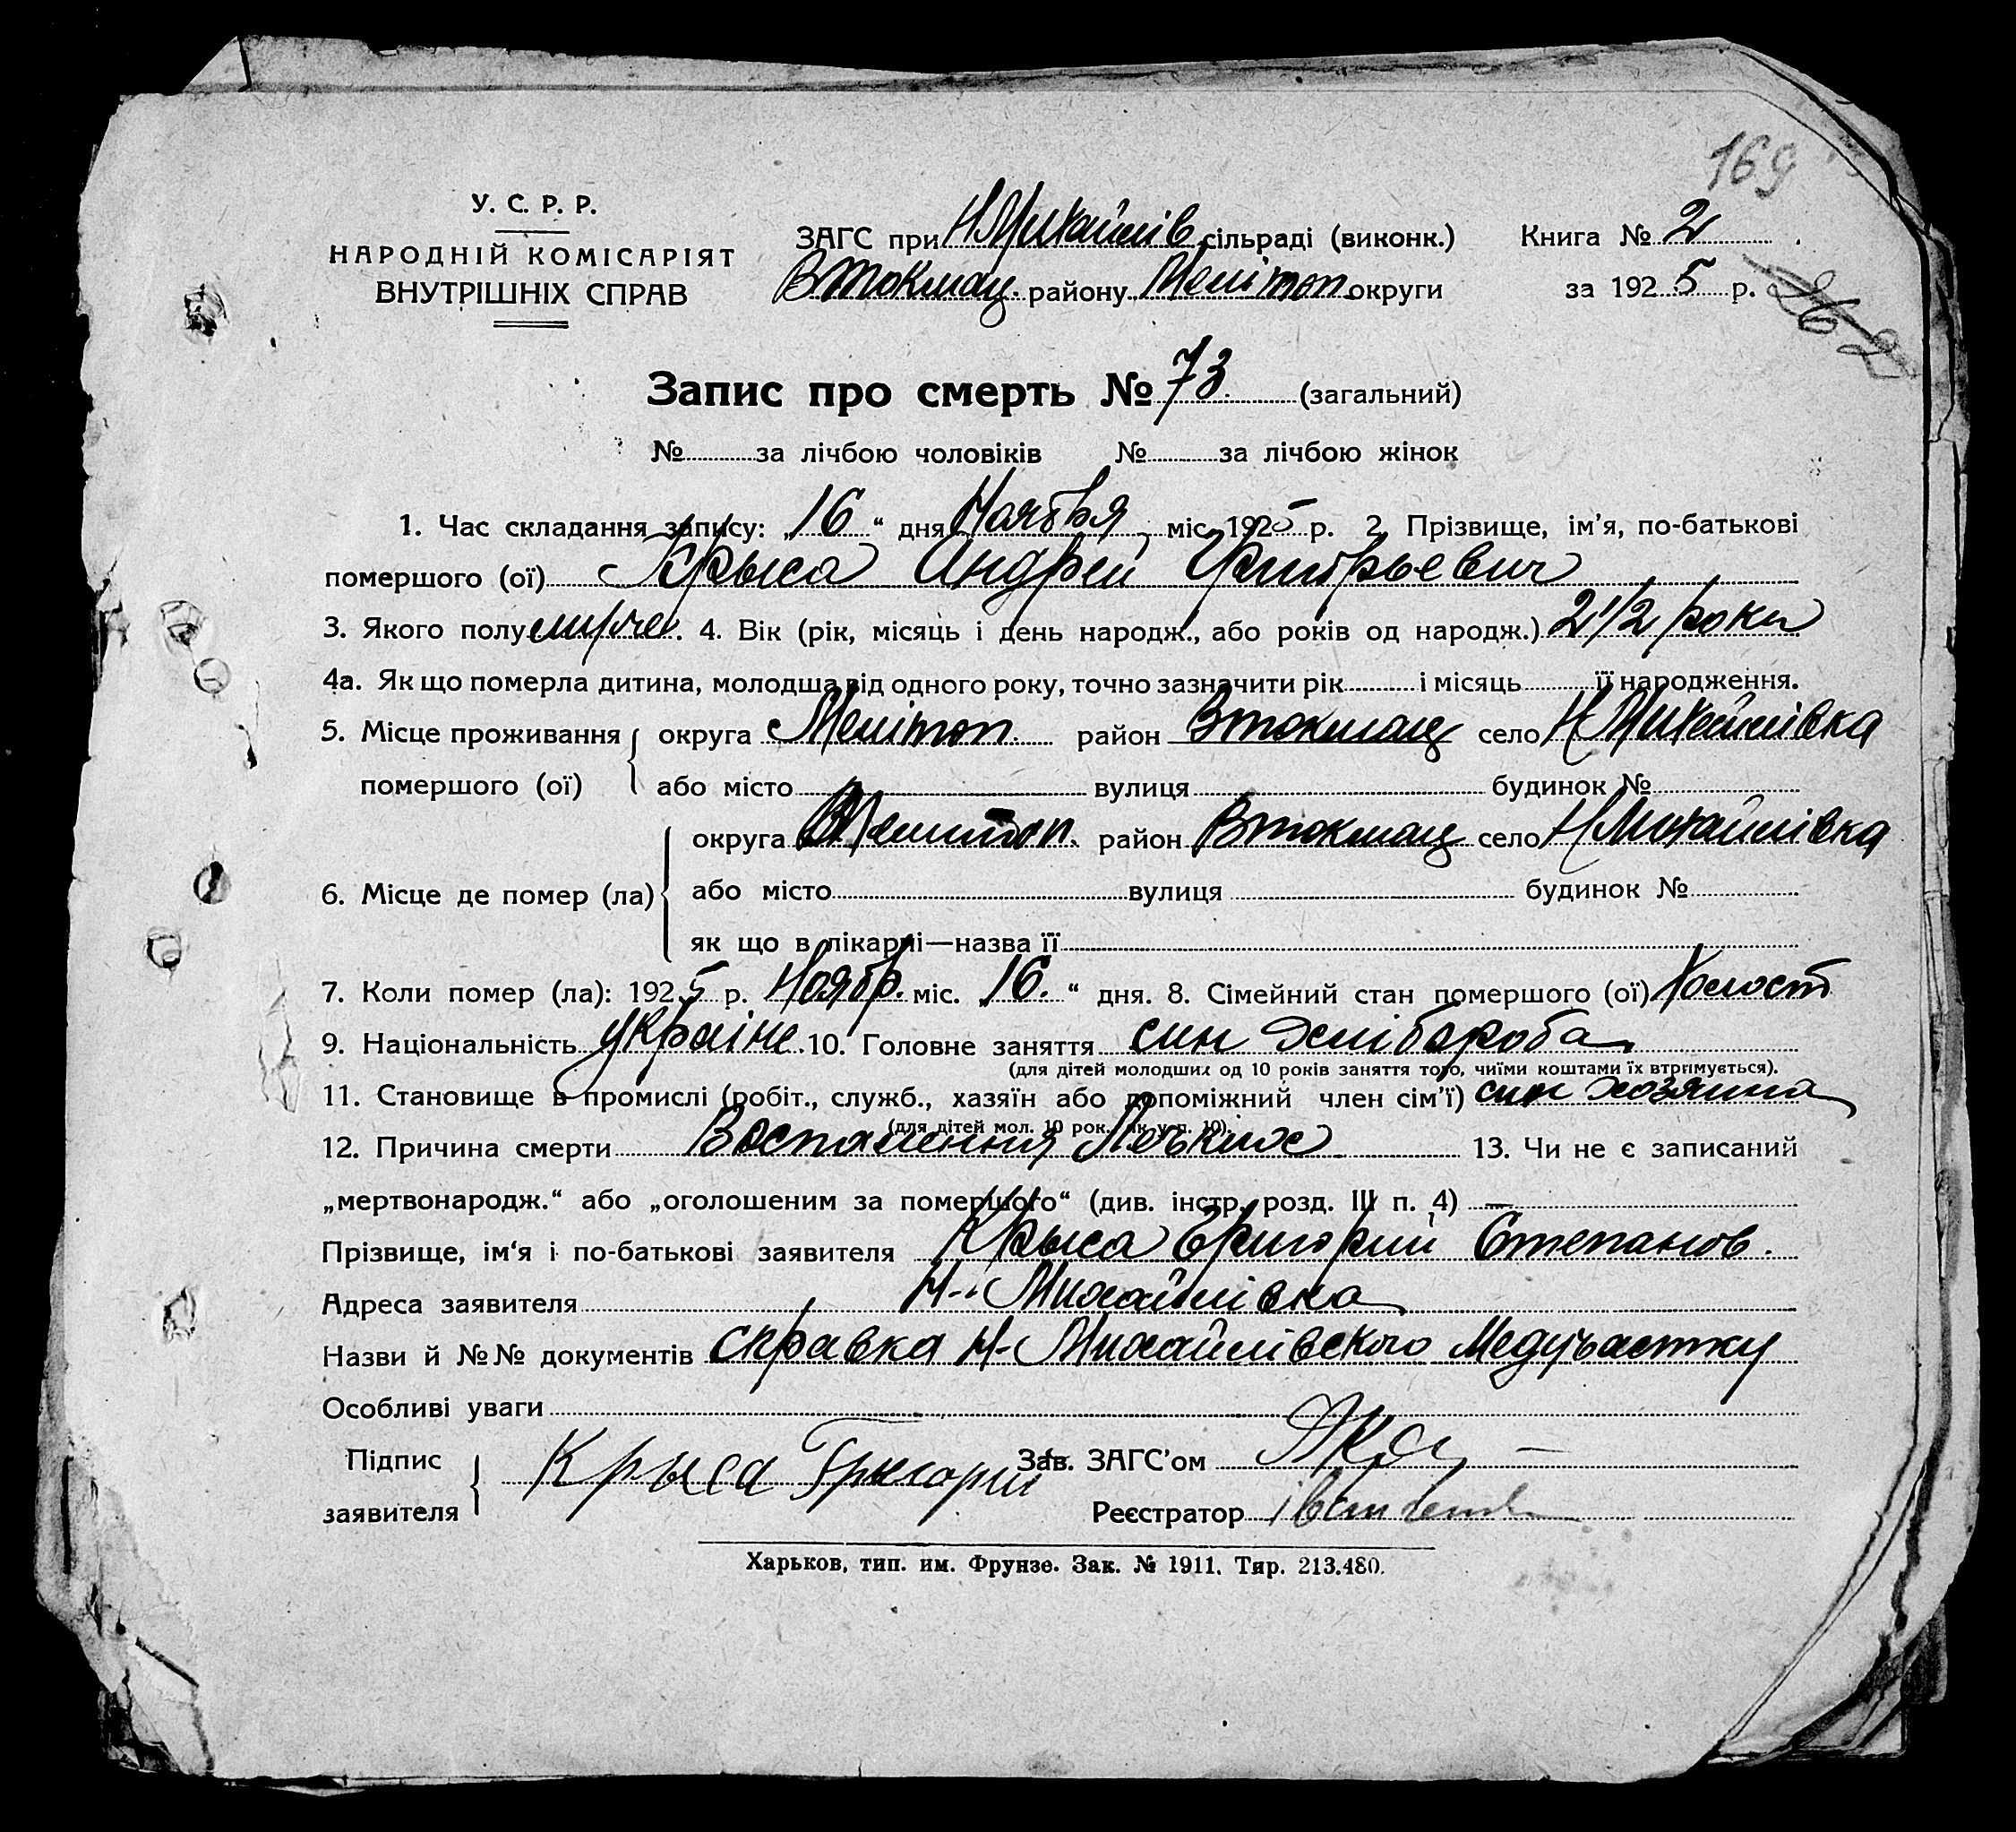 169
У. С. Р. Р.
НАРОДНІЙ КОМІСАРІЯТ
ВНУТРІШНІХ СПРАВ
ЗАГС при Н Михайлів сільраді (виконк.) Книга № 2
ВТокмац. району Меліт оп. округи за 1925 р.
262
Запис про смерть № 73. (загальний)
№ за лічбою чоловіків № за лічбою жінок
1. Час складання запису: „16“ дня Ноября міс. 1925 р. 2. Прізвище, ім'я, по-батькові
помершого (ої) Крыса Андрей Григорьевич
3. Якого полу мужче. 4. Вік (рік, місяць і день народж., або років од народж.) 2 1/2 роки
4а. Як що померла дитина, молодша від одного року, точно зазначити рік і місяць її народження.
5. Місце проживання округа Мелітоп. район Втокмац село Н Михайлівка
помершого (ої) або місто вулиця будинок №
округа Мелитоп. район Втокмац село Н Михайлівка
6. Місце де помер (ла) або місто вулиця будинок №
як що в лікарні—назва її
7. Коли помер (ла): 1925 р. Ноябр. міс. 16. “ дня. 8. Сімейний стан помершого (ої) Холост
9. Національність украіне. 10. Головне заняття син хлібороба
(для дітей молодших од 10 років заняття того, чиїми коштами їх втримується).
11. Становище в промислі (робіт., служб., хазяїн або допоміжний член сім'ї) син хозяина
(для дітей мол. 10 рок. як у п. 10).
12. Причина смерти Воспаления Легких 13. Чи не є записаний
„мертвонародж.“ або „оголошеним за помершого“ (див. інстр. розд. III п. 4) —
Прізвище, ім'я і по-батькові заявителя Крыса Григорий Степанов.
Адреса заявителя Н-Михайлівка
Назви й №№ документів справка Н-Михайлівского Медучастку
Особливі уваги
Підпис Крыса Грыгорий Зав. ЗАГС'ом
заявителя Реєстратор
Харьков, тип. им. Фрунзе. Зак. № 1911. Тир. 213.480.